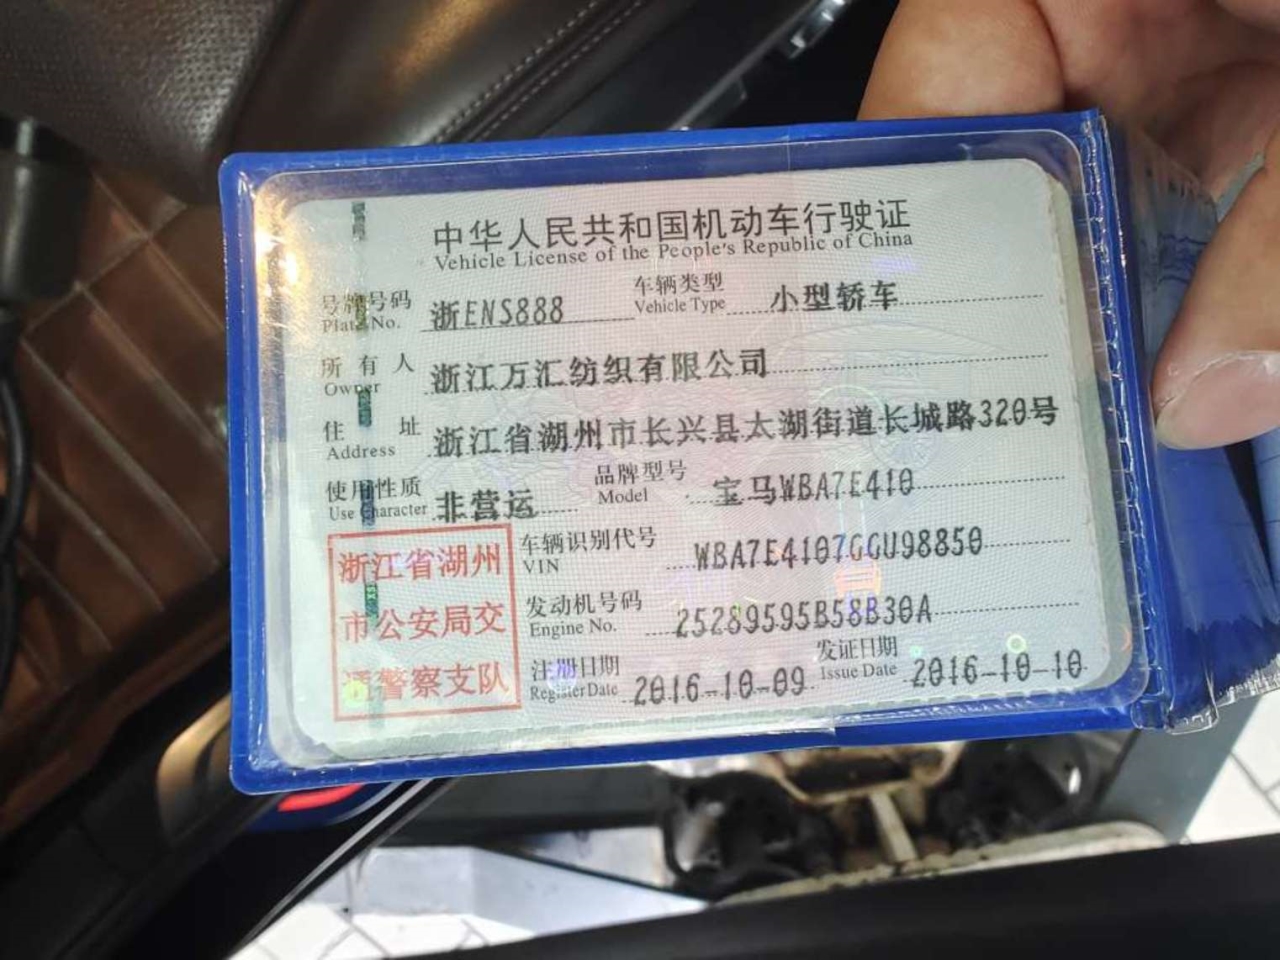 中华人民共和国机动车行驶证
Vehicle License of the People's Republic of China
号牌号码 浙ENS888 车辆类型 小型轿车
Plate No. Vehicle Type
所有人 浙江万汇纺织有限公司
Owner
住址 浙江省湖州市长兴县太湖街道长城路320号
Address
使用性质 非营运 品牌型号 宝马WBA7E410
Use Character Model
浙江省湖州
市公安局交
通警察支队
车辆识别代号 WBA7E4107GGU98850
VIN
发动机号码 25289595B58B30A
Engine No.
注册日期 2016-10-09 发证日期 2016-10-10
Register Date Issue Date